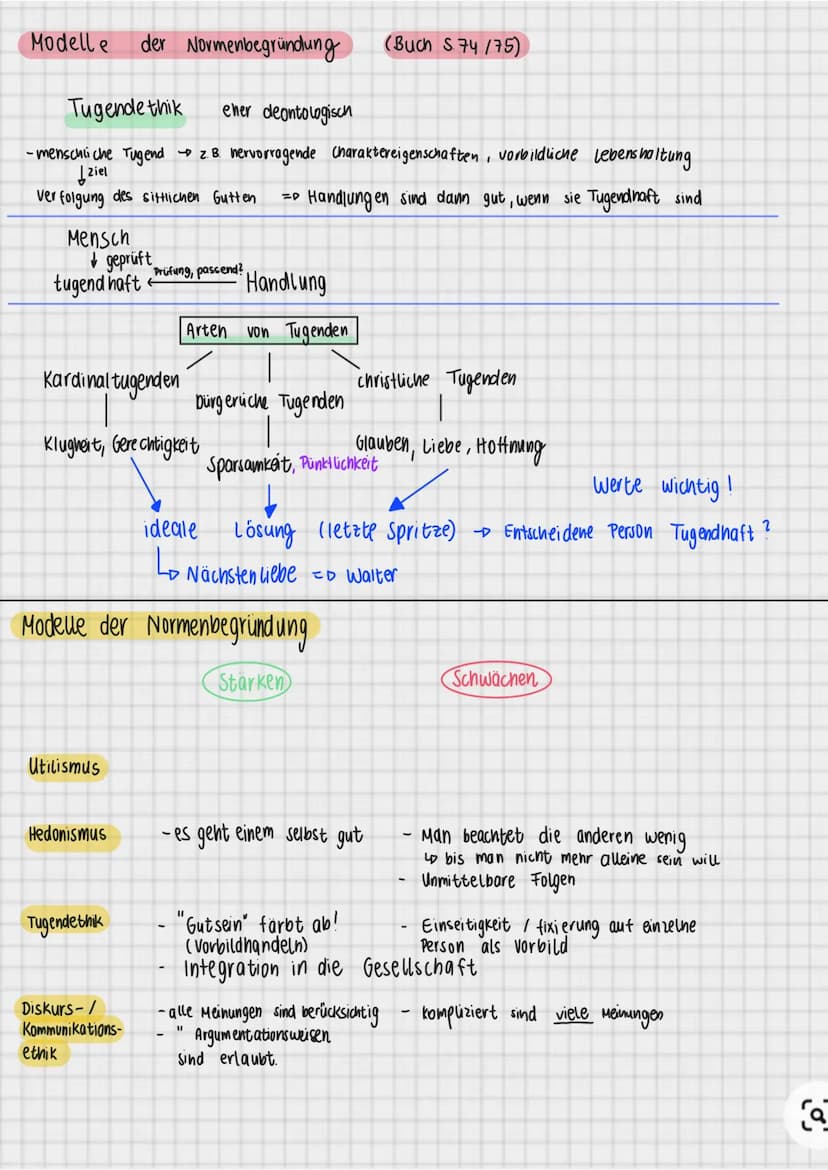 Modelle der Normenbegründung (Buch S 74/75)
Tugendethik eher deontologisch
- menschliche Tugend → z.B. hervorragende Charaktereigenschaften, vorbildliche Lebenshaltung
↓ Ziel
Verfolgung des sittlichen Gutten => Handlungen sind dann gut, wenn sie Tugendhaft sind
Mensch
↓ geprüft
tugendhaft ← Prüfung, passend? Handlung
Arten von Tugenden
Kardinaltugenden bürgerliche Tugenden christliche Tugenden
Klugheit, Gerechtigkeit Sparsamkeit, Pünktlichkeit Glauben, Liebe, Hoffnung
Werte wichtig!
ideale Lösung (letzte Spritze) → Entscheidene Person Tugendhaft?
↳ Nächstenliebe => Walter
Modelle der Normenbegründung
Stärken Schwächen
Utilismus
Hedonismus - es geht einem selbst gut - Man beachtet die anderen wenig
↳ bis man nicht mehr alleine sein will
- Unmittelbare Folgen
Tugendethik - "Gutsein" färbt ab! - Einseitigkeit / fixierung auf einzelne
(Vorbildhandeln) Person als Vorbild
- Integration in die Gesellschaft
Diskurs-/ - alle Meinungen sind berücksichtig - kompliziert sind viele Meinungen
Kommunikations- - " Argumentationsweisen
ethik sind erlaubt.